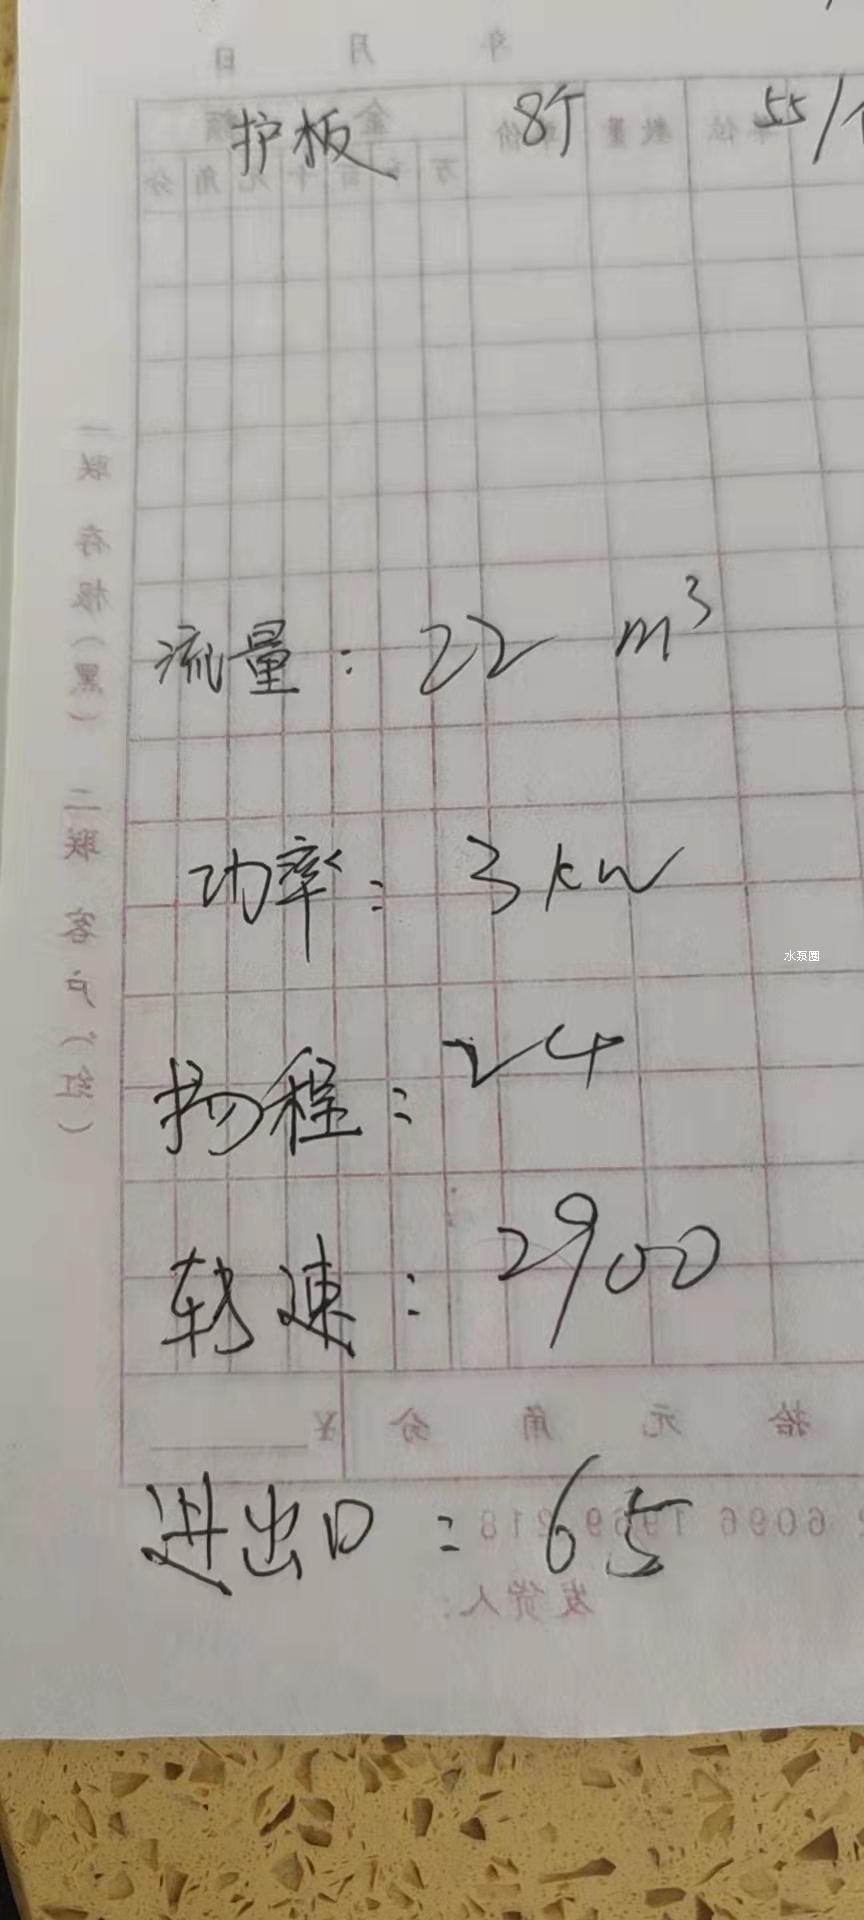 护板 8个 55/个
流量: 22 m³
功率: 3 kw
水泵圈
扬程: 24
转速: 2900
进出口: 65
年 月 日
金额
单价 数量 单位
万 千 百 十 元 角 分
一联 存根(黑) 二联 客户(红)
拾 元 角 分 ¥
发货人: